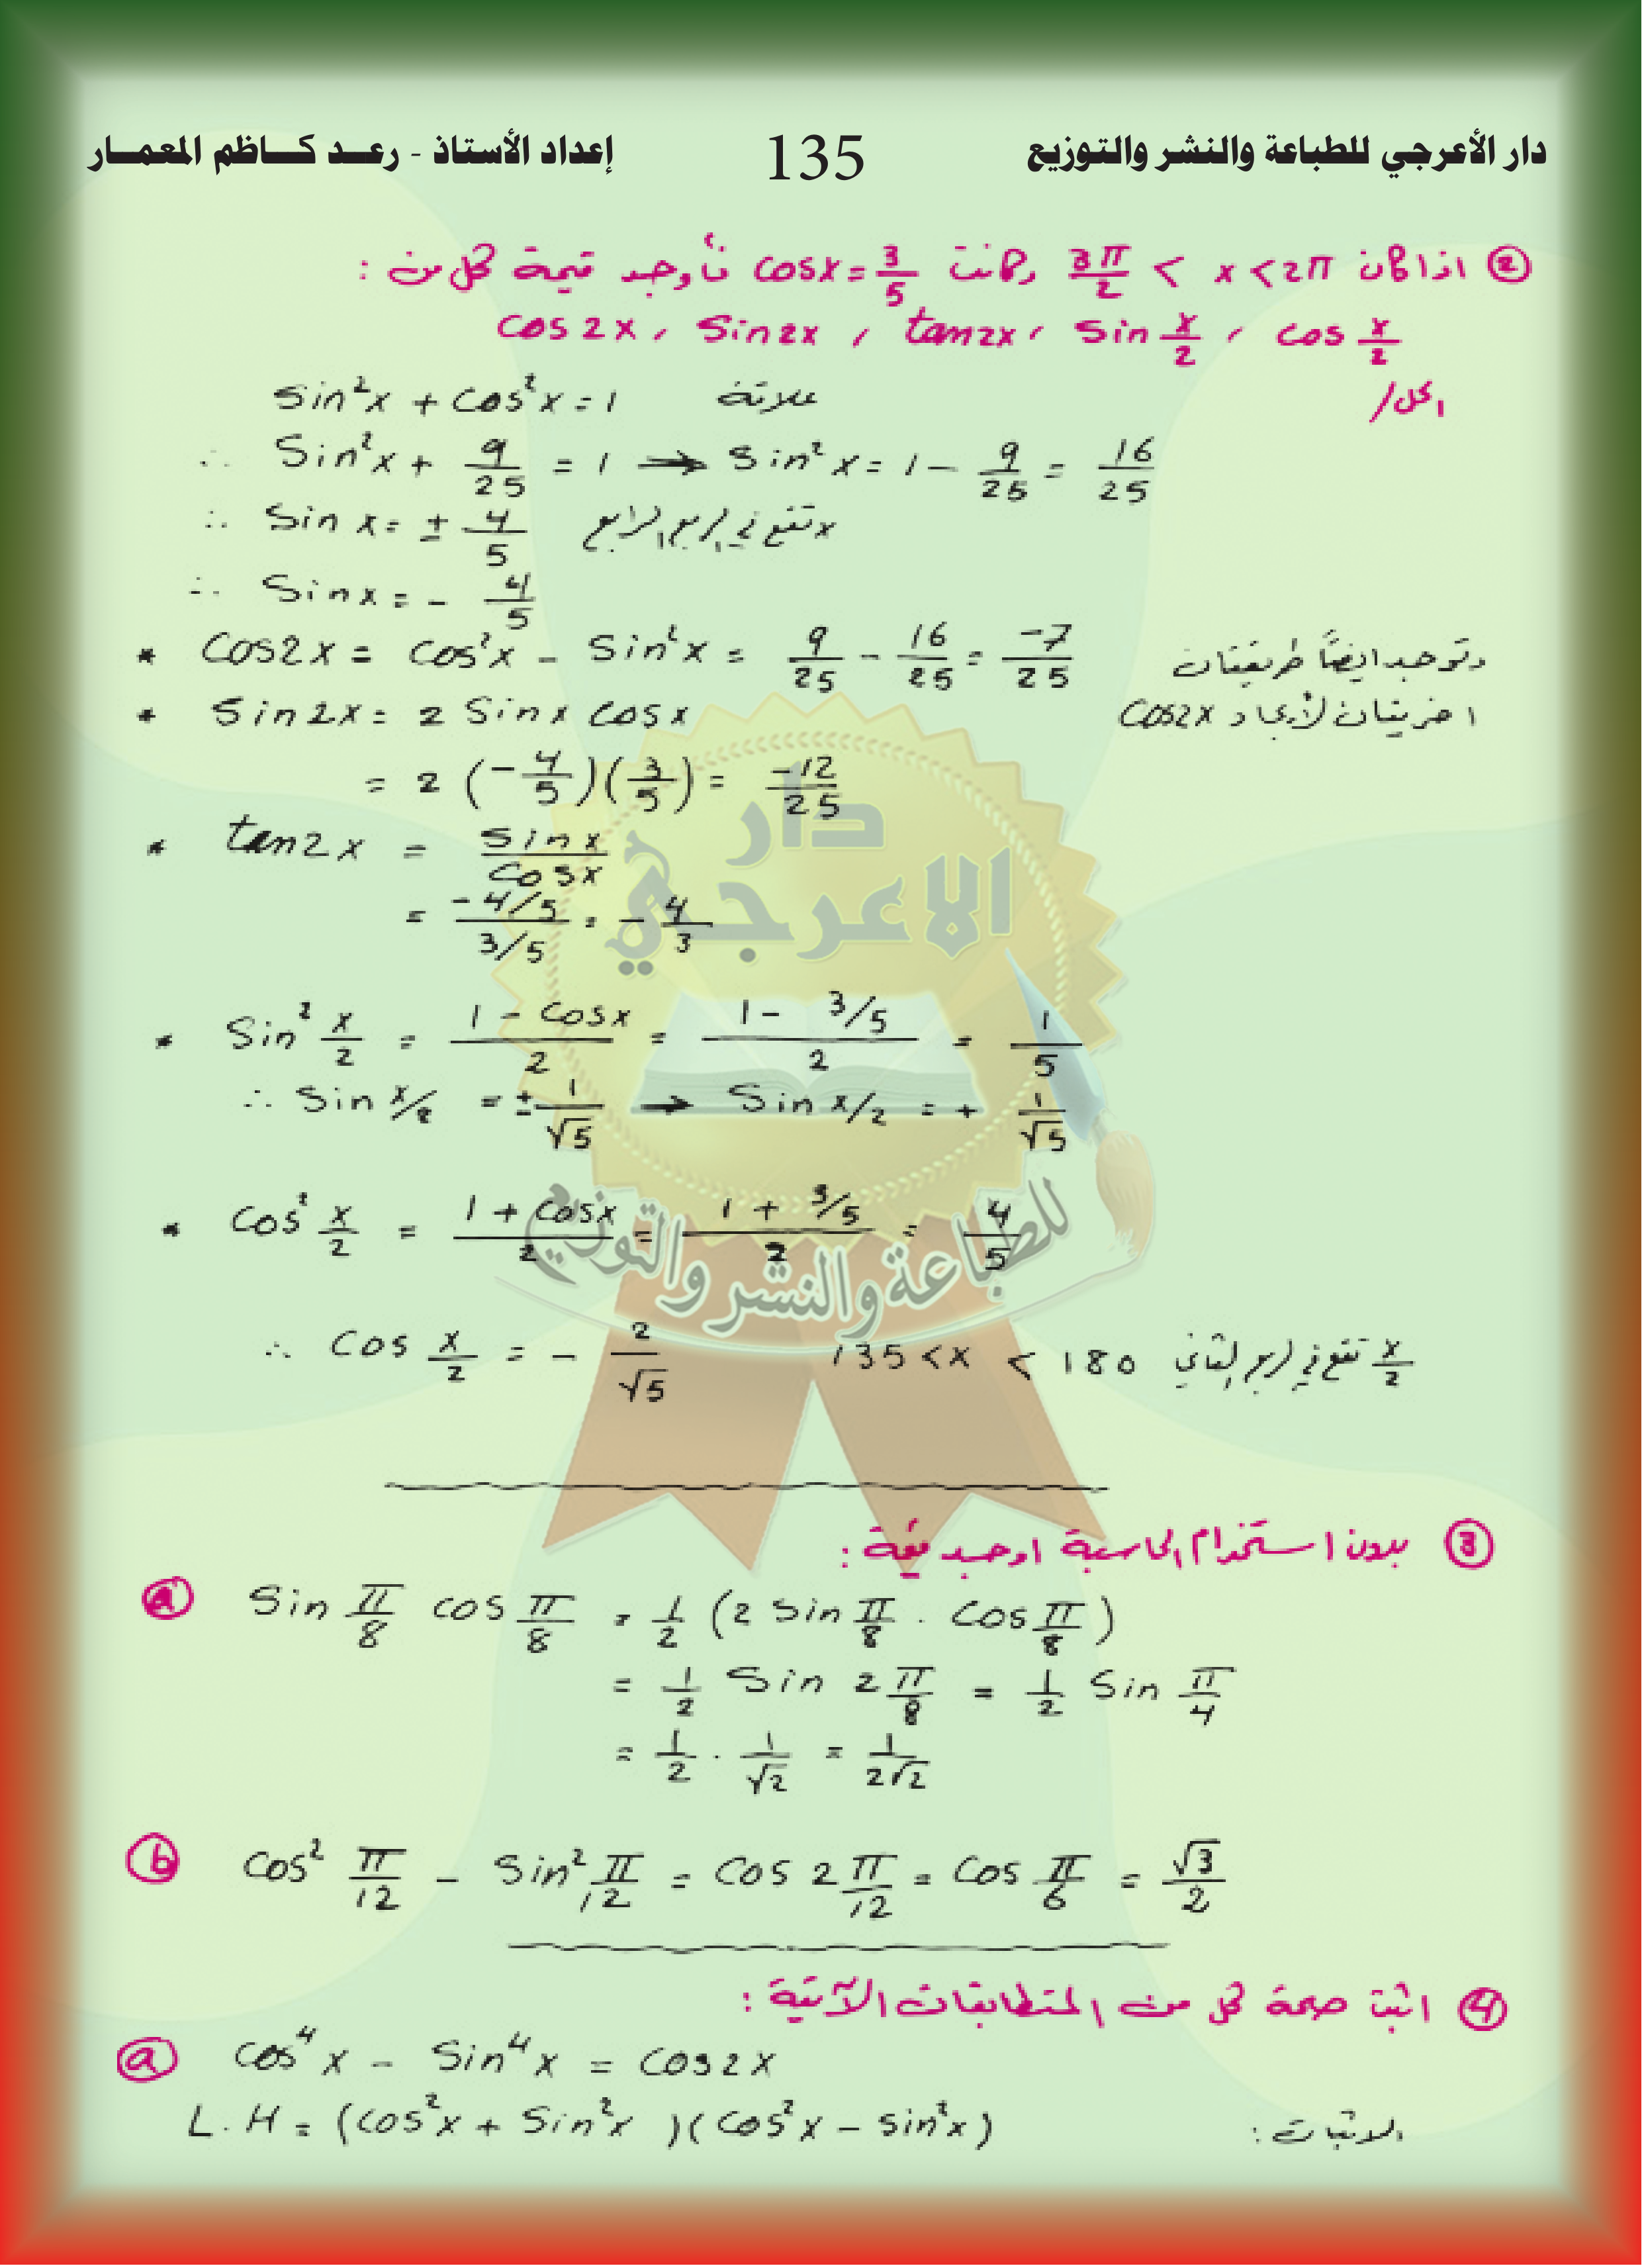 دار الأعرجي للطباعة والنشر والتوزيع 135 إعداد الأستاذ - رعـد كـاظم المعمـار
② اذا كان 3π/2 < x < 2π وكانت cosx = 3/5 فأوجد قيمة كل من :
cos2x ، sin2x ، tan2x ، sin x/2 ، cos x/2
الحل/
sin²x + cos²x = 1 علاقة
∴ sin²x + 9/25 = 1 → sin²x = 1 - 9/25 = 16/25
∴ sin x = ± 4/5 x تقع في الربع الرابع
∴ sinx = - 4/5
* cos2x = cos²x - sin²x = 9/25 - 16/25 = -7/25 وتوجد ايضاً طريقتان
* sin2x = 2 sinx cosx اخريتان لأيجاد cos2x
= 2 (-4/5)(3/5) = -12/25
* tan2x = sinx/cosx
= -4/5 / 3/5 = - 4/3
* sin² x/2 = 1 - cosx / 2 = 1 - 3/5 / 2 = 1/5
∴ sin x/2 = ± 1/√5 → sin x/2 = + 1/√5
* cos² x/2 = 1 + cosx / 2 = 1 + 3/5 / 2 = 4/5
∴ cos x/2 = - 2/√5 135 < x < 180 x/2 تقع في الربع الثاني
③ بدون استخدام الحاسبة اوجد قيمة :
ⓐ sin π/8 cos π/8 = 1/2 (2 sin π/8 . cos π/8)
= 1/2 sin 2 π/8 = 1/2 sin π/4
= 1/2 . 1/√2 = 1/2√2
ⓑ cos² π/12 - sin² π/12 = cos 2 π/12 = cos π/6 = √3/2
④ اثبت صحة كل من المتطابقات الآتية :
ⓐ cos⁴x - sin⁴x = cos2x
L.H = (cos²x + sin²x)(cos²x - sin²x) الاثبات :
دار
الاعرجي
للطباعة والنشر والتوزيع